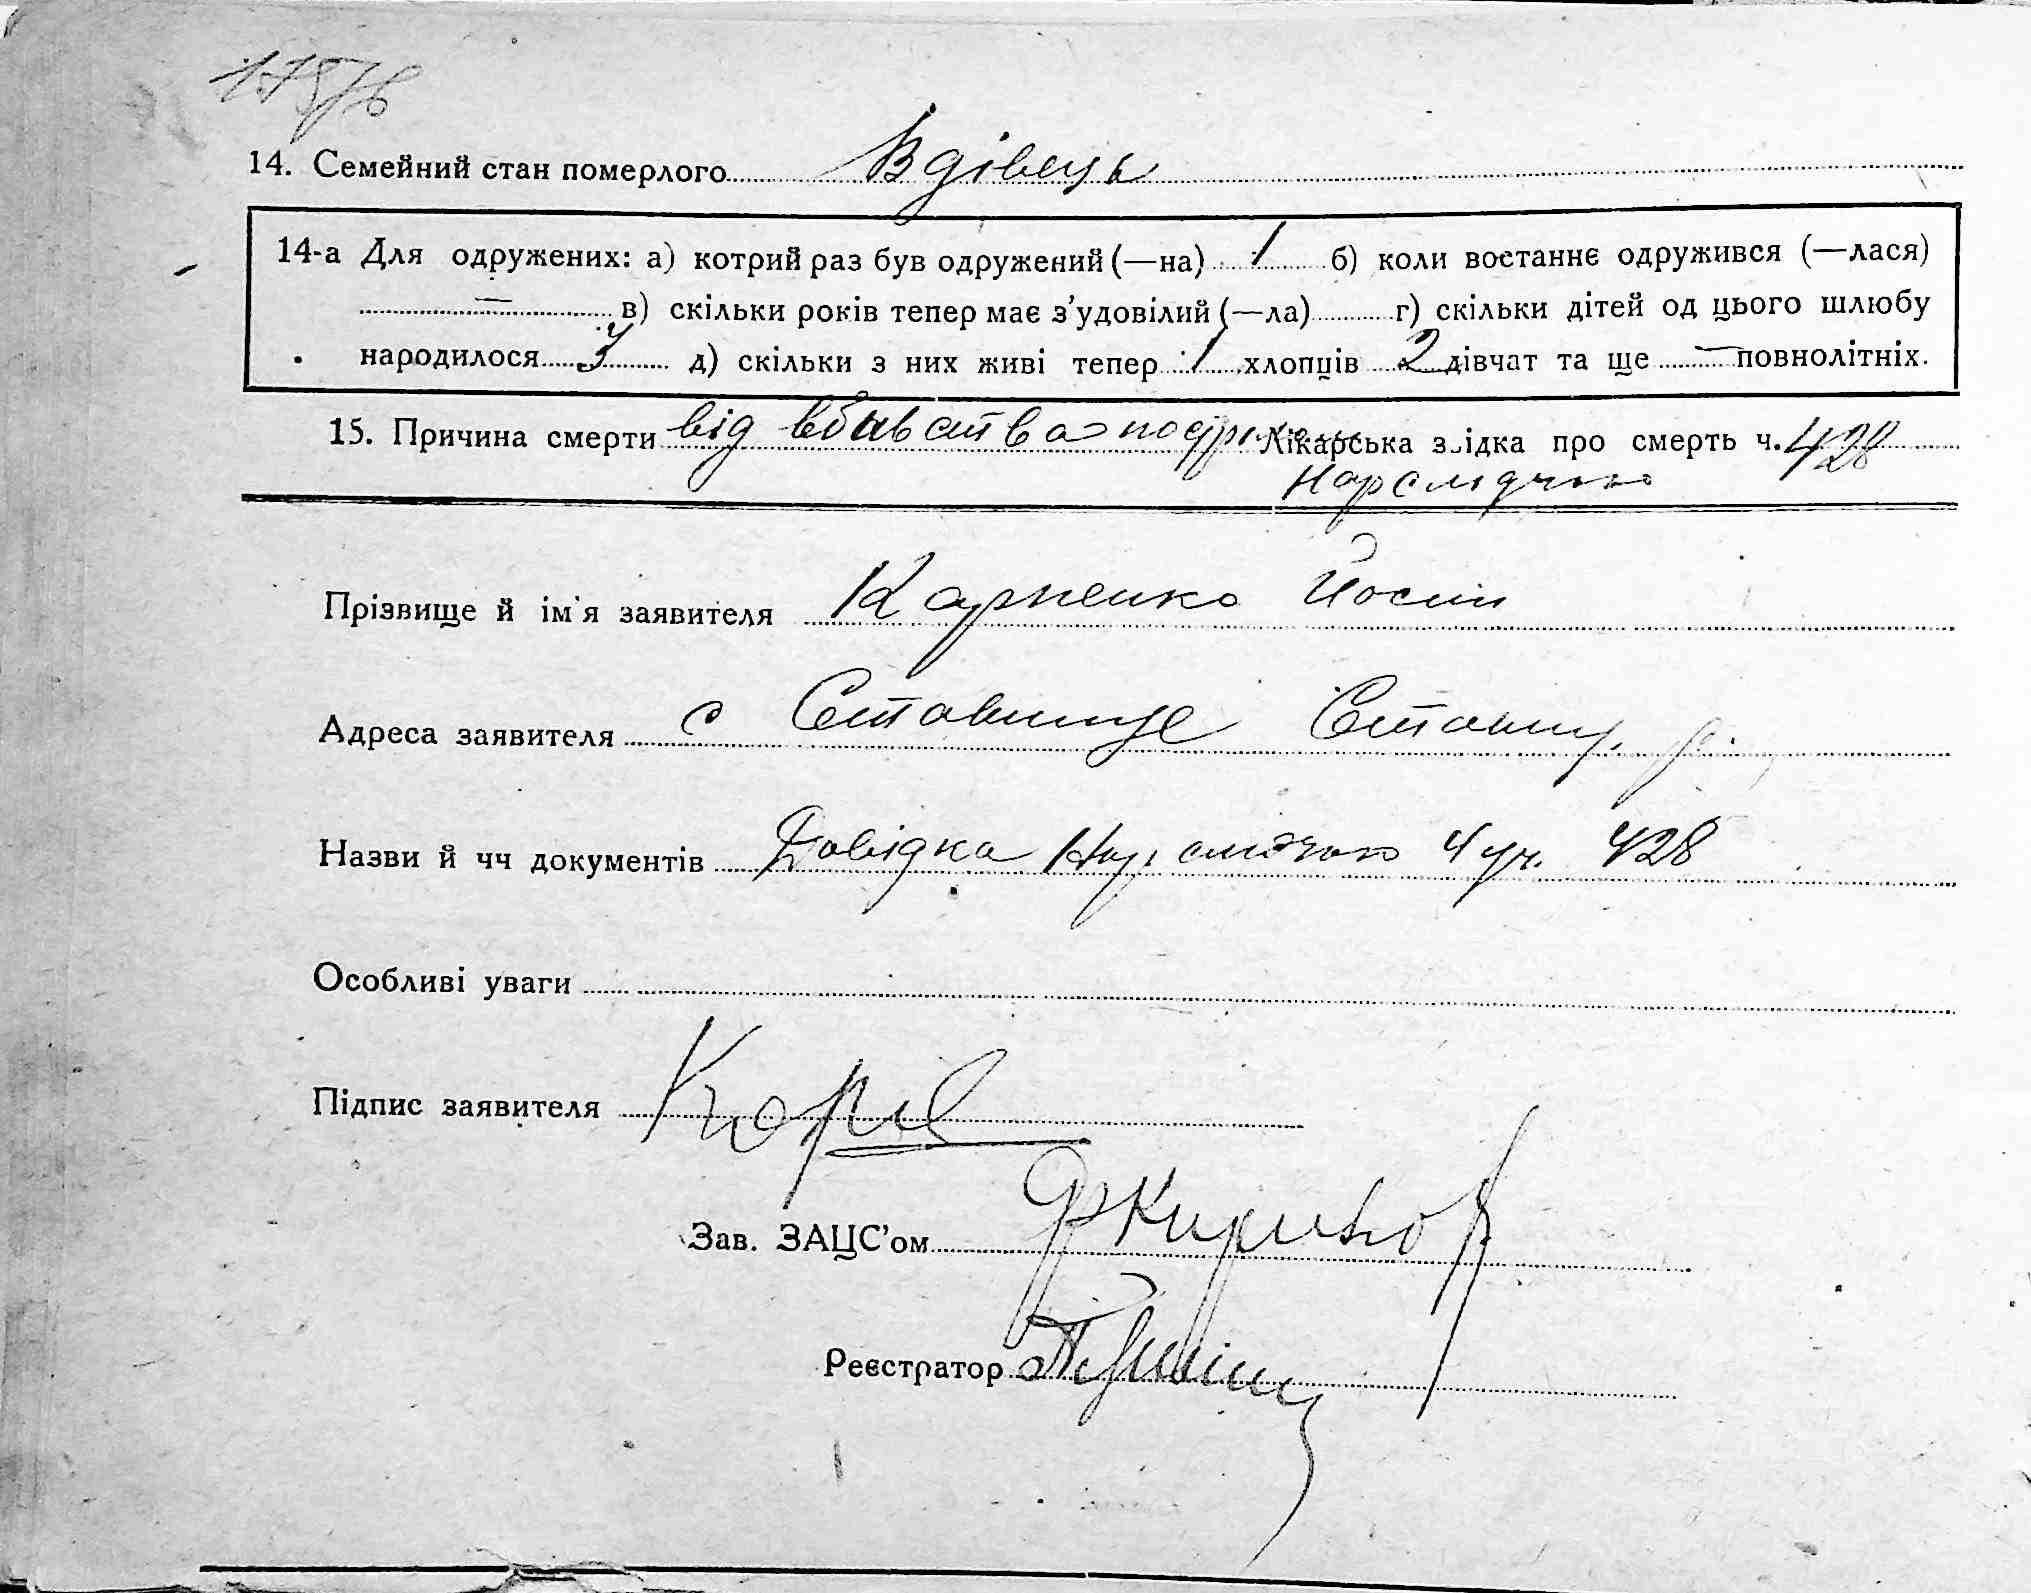 14. Семейний стан померлого Вдівець
14-а Для одружених: а) котрий раз був одружений (—на) 1 б) коли востаннє одружився (—лася)
— в) скільки років тепер має з’удовілий (—ла) г) скільки дітей од цього шлюбу
народилося 3 д) скільки з них живі тепер 1 хлопців 2 дівчат та ще — повнолітніх.
15. Причина смерти від вбивства Лікарська звідка про смерть ч. 428
Нарслідчого
Прізвище й ім'я заявителя Карпенко Йосип
Адреса заявителя с Ставище Ставищ. р.
Назви й чч документів Довідка Нарслідчого 4 уч. 428
Особливі уваги
Підпис заявителя
Зав. ЗАЦС’ом
Реєстратор